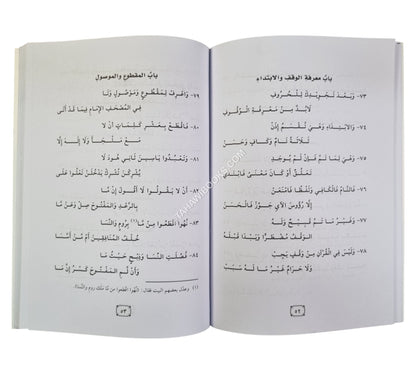 بابُ معرفة الوقف والابتداء
٧٣- وَبَعْدَ تَجْوِيدِكَ لِلْحُرُوفِ
لَابُدَّ مِنْ مَعْرِفَةِ الْوُقُوفِ
٧٤- وَالِابْتِدَاءِ وَهْيَ تُقْسَمُ إِذَنْ
ثَلَاثَةً تَامٌ وَكَافٍ وَحَسَنْ
٧٥- وَهْيَ لِمَا تَمَّ فَإِنْ لَمْ يُوجَدِ
تَعَلُّقٌ أَوْ كَانَ مَعْنًى فَابْتَدِي
٧٦- فَالتَّامُ فَالْكَافِي وَلَفْظًا فَامْنَعَنْ
إِلَّا رُؤُوسَ الْآيِ جَوِّزْ فَالْحَسَنْ
٧٧- وَغَيْرُ مَا تَمَّ قَبِيحٌ وَلَهُ
الْوَقْفُ مُضْطَرًّا وَيَبْدَا قَبْلَهُ
٧٨- وَلَيْسَ فِي الْقُرْآنِ مِنْ وَقْفٍ يَجِبْ
وَلَا حَرَامٌ غَيْرَ مَا لَهُ سَبَبْ
٥٢
بابُ المقطوع والموصول
٧٩- وَاعْرِفْ لِمَقْطُوعٍ وَمَوْصُولٍ وَتَا
فِي الْمُصْحَفِ الْإِمَامِ فِيمَا قَدْ أَتَى
٨٠- فَاقْطَعْ بِعَشْرِ كَلِمَاتٍ أَنْ لَا
مَعْ مَلْجَأً وَلَا إِلَهَ إِلَّا
٨١- وَتَعْبُدُوا يَاسِينَ ثَانِي هُودَ لَا
يُشْرِكْنَ تُشْرِكْ يَدْخُلَنْ تَعْلُوا عَلَى
٨٢- أَنْ لَا يَقُولُوا لَا أَقُولَ إِنْ مَا
بِالرَّعْدِ وَالْمَفْتُوحَ صِلْ وَعَنْ مَا
٨٣- نُهُوا اقْطَعُوا مِنْ مَا (١) بِرُومٍ وَالنِّسَا
خُلْفُ الْمُنَافِقِينَ أَمْ مَنْ أَسَّسَا
٨٤- فُصِّلَتِ النِّسَا وَذِبْحٍ حَيْثُ مَا
وَأَنْ لَمِ الْمَفْتُوحَ كَسْرُ إِنَّ مَا
(١) وعدّل بعضهم البيت فقال: نُهُوا اقطعوا من مَا مَلَكْ روم والنِّسَا.
٥٣
TAHAWIBOOKS.COM